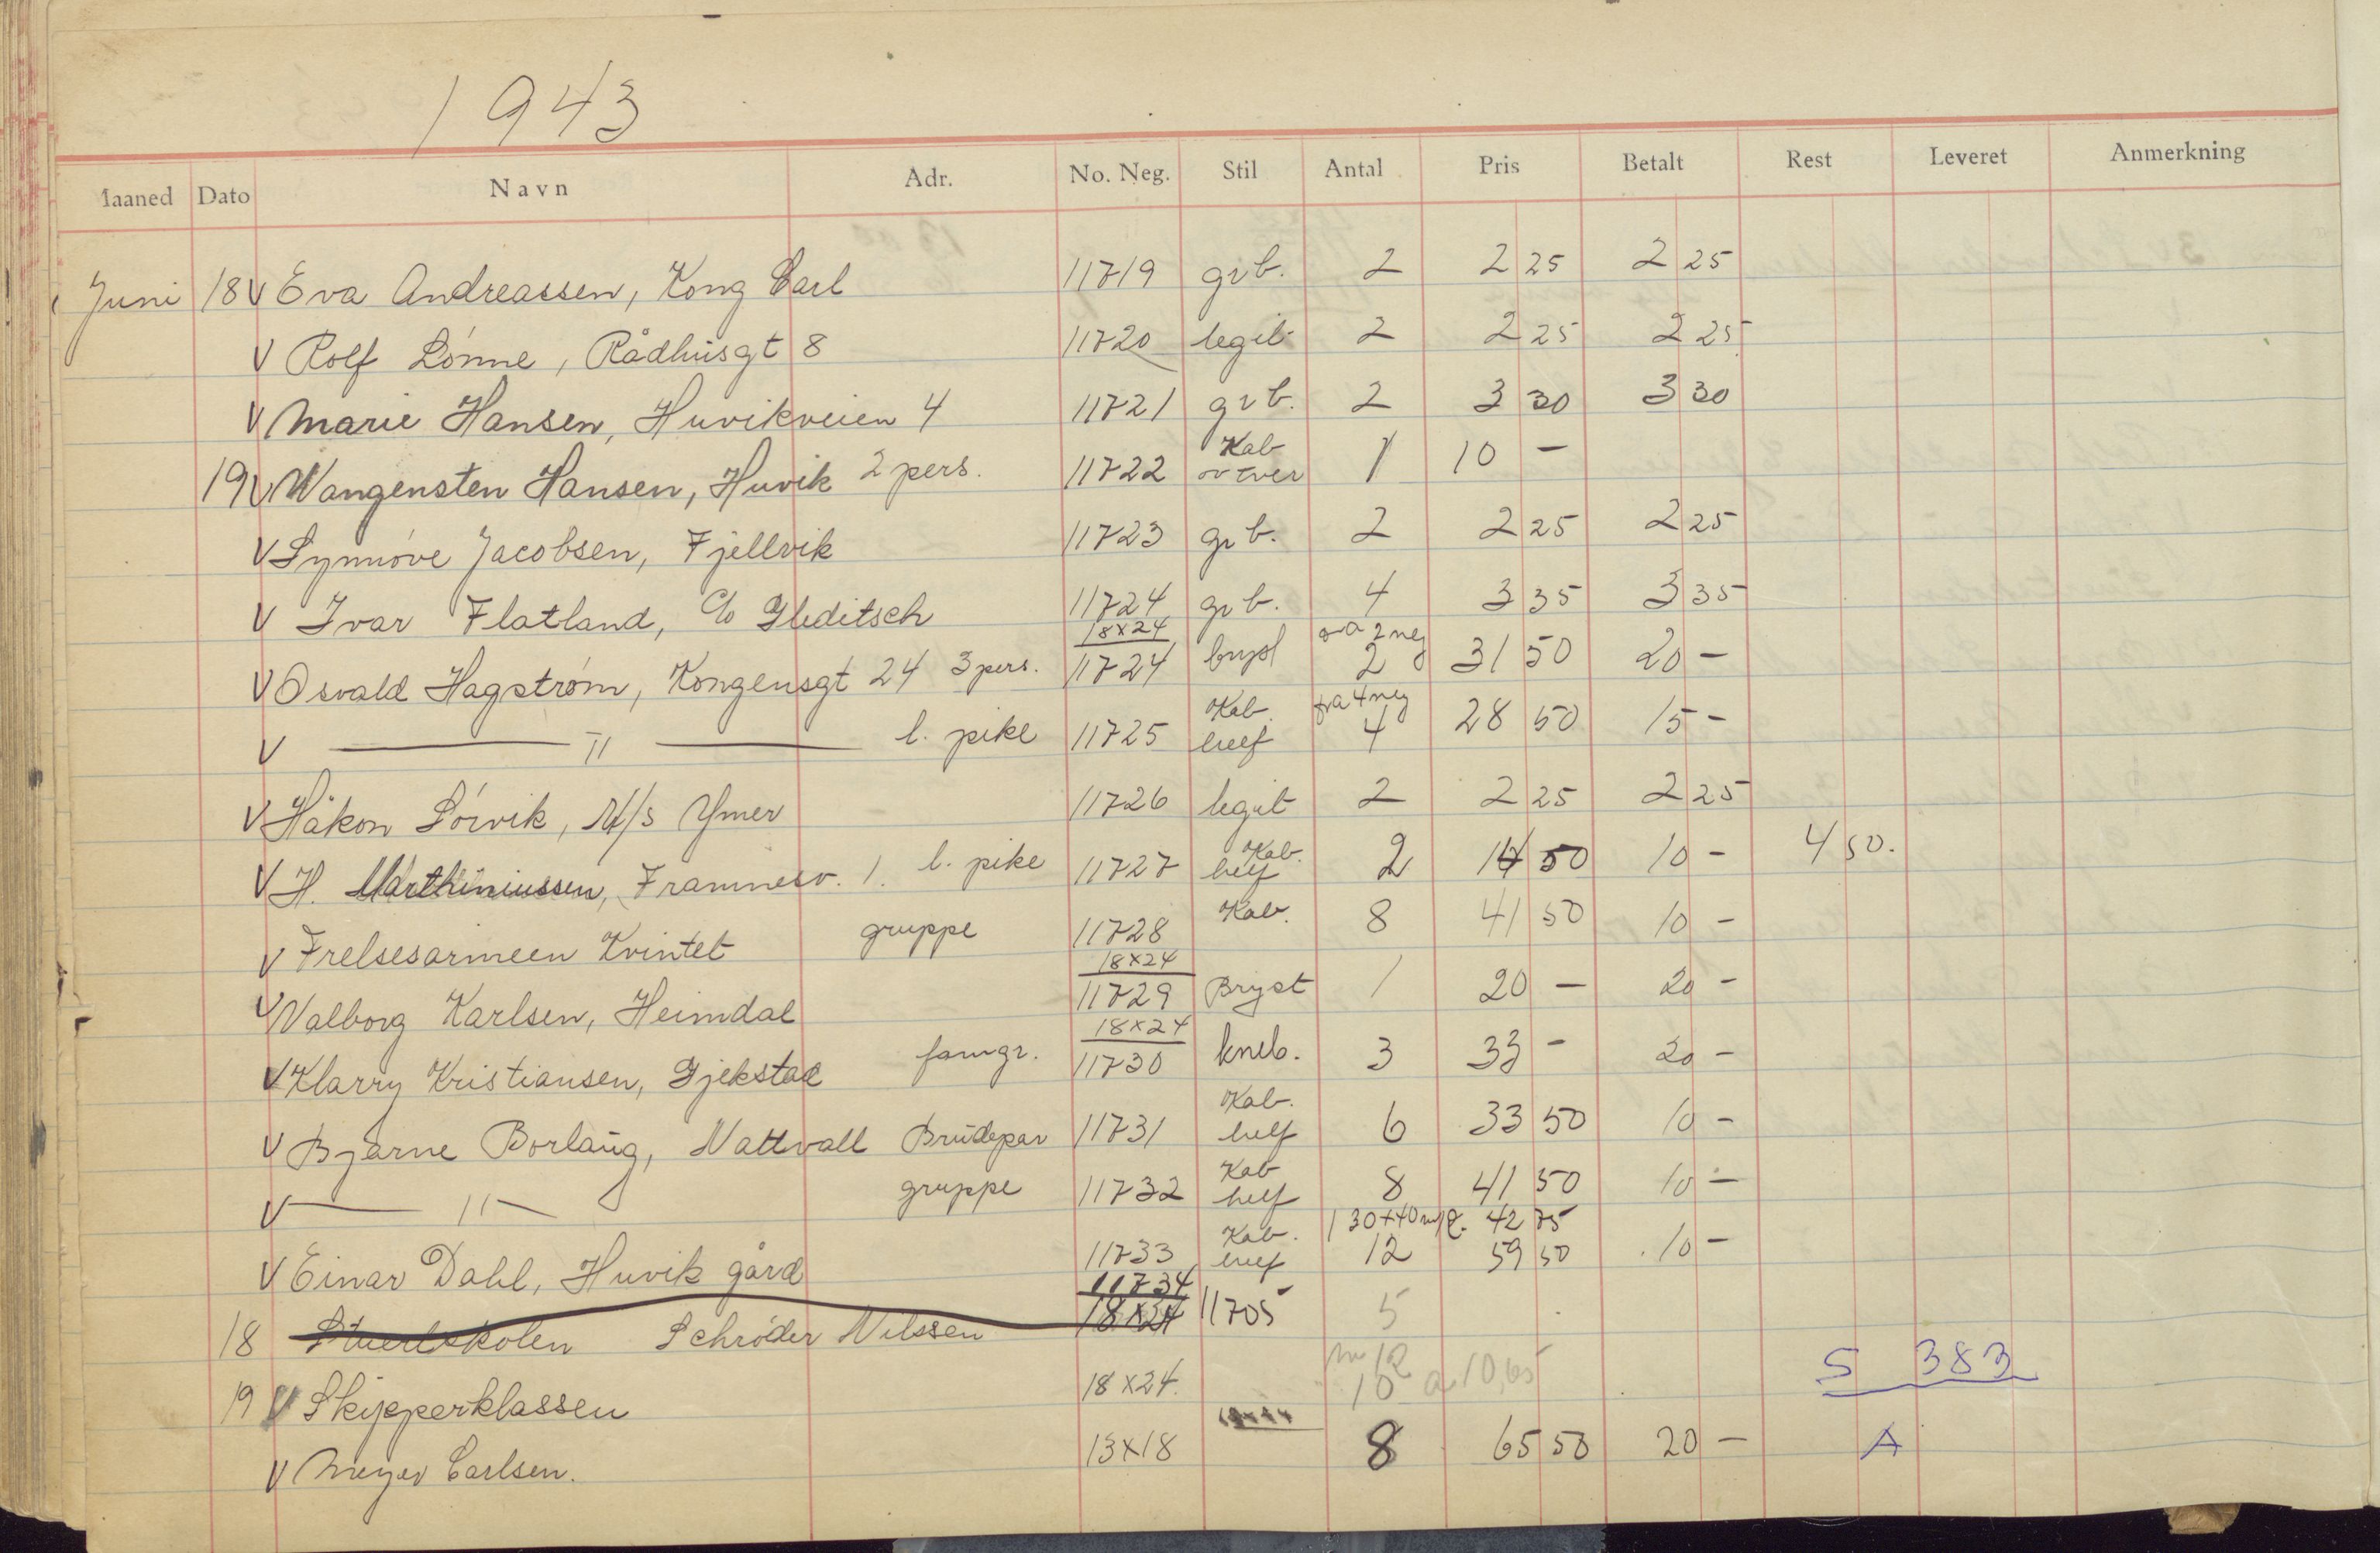 1943
Maaned Dato Navn Adr. No. Neg. Stil Antal Pris Betalt Rest Leveret Anmerkning
Juni 18 V Eva Andreassen, Kong Carl 11719 grb. 2 2 25 2 25
V Rolf Lónne, Rådhusgt 8 11720 legit 2 2 25 2 25
V Marie Hansen, Huvikveien 4 11721 grb. 2 3 30 3 30
19 V Wangensten Hansen, Huvik 2 pers. 11722 Kab 1 10 -
V Synnóve Jacobsen, Fjellvik 11723 grb. 2 2 25 2 25
V Ivar Flatland, c/o Gleditsch 11724 grb. 4 3 35 3 35
18x24 2 neg
V Osvald Hagstróm, Kongensgt 24 3 pers. 11724 bryst 2 31 50 20 -
Kab. fra 4 neg
V — " — l. pike 11725 helf 4 28 50 15 -
V Håkon Sórvik, M/S Ymer 11726 legit 2 2 25 2 25
V H. Marthiniussen, Framnesv. 1. l. pike 11727 Kab. helf 2 14 50 10 - 4 50.
V Frelsesarmeen Kvintet gruppe 11728 Kab. 8 41 50 10 -
18x24
V Valborg Karlsen, Heimdal 11729 Bryst 1 20 - 20 -
18x24
V Klarry Kristiansen, Gjekstad famgr. 11730 kneb. 3 33 - 20 -
Kab.
V Bjarne Borlaug, Nattvall Brudepar 11731 helf 6 33 50 10 -
Kab
V — " — gruppe 11732 helf 8 41 50 10 -
Kab. 42 75
V Einar Dahl, Huvik gård 11733 helf 12 59 50 10 -
11734
18 Schróder Nilssen 18x24 11705 5
12
19 V Skipperklassen 18x24. 10 a 10,65 S 383
18x24
V Meyer Carlsen. 13x18 8 65 50 20 - A